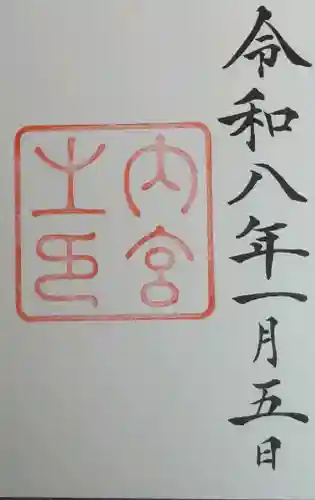 令和八年一月五日
内宮
之印